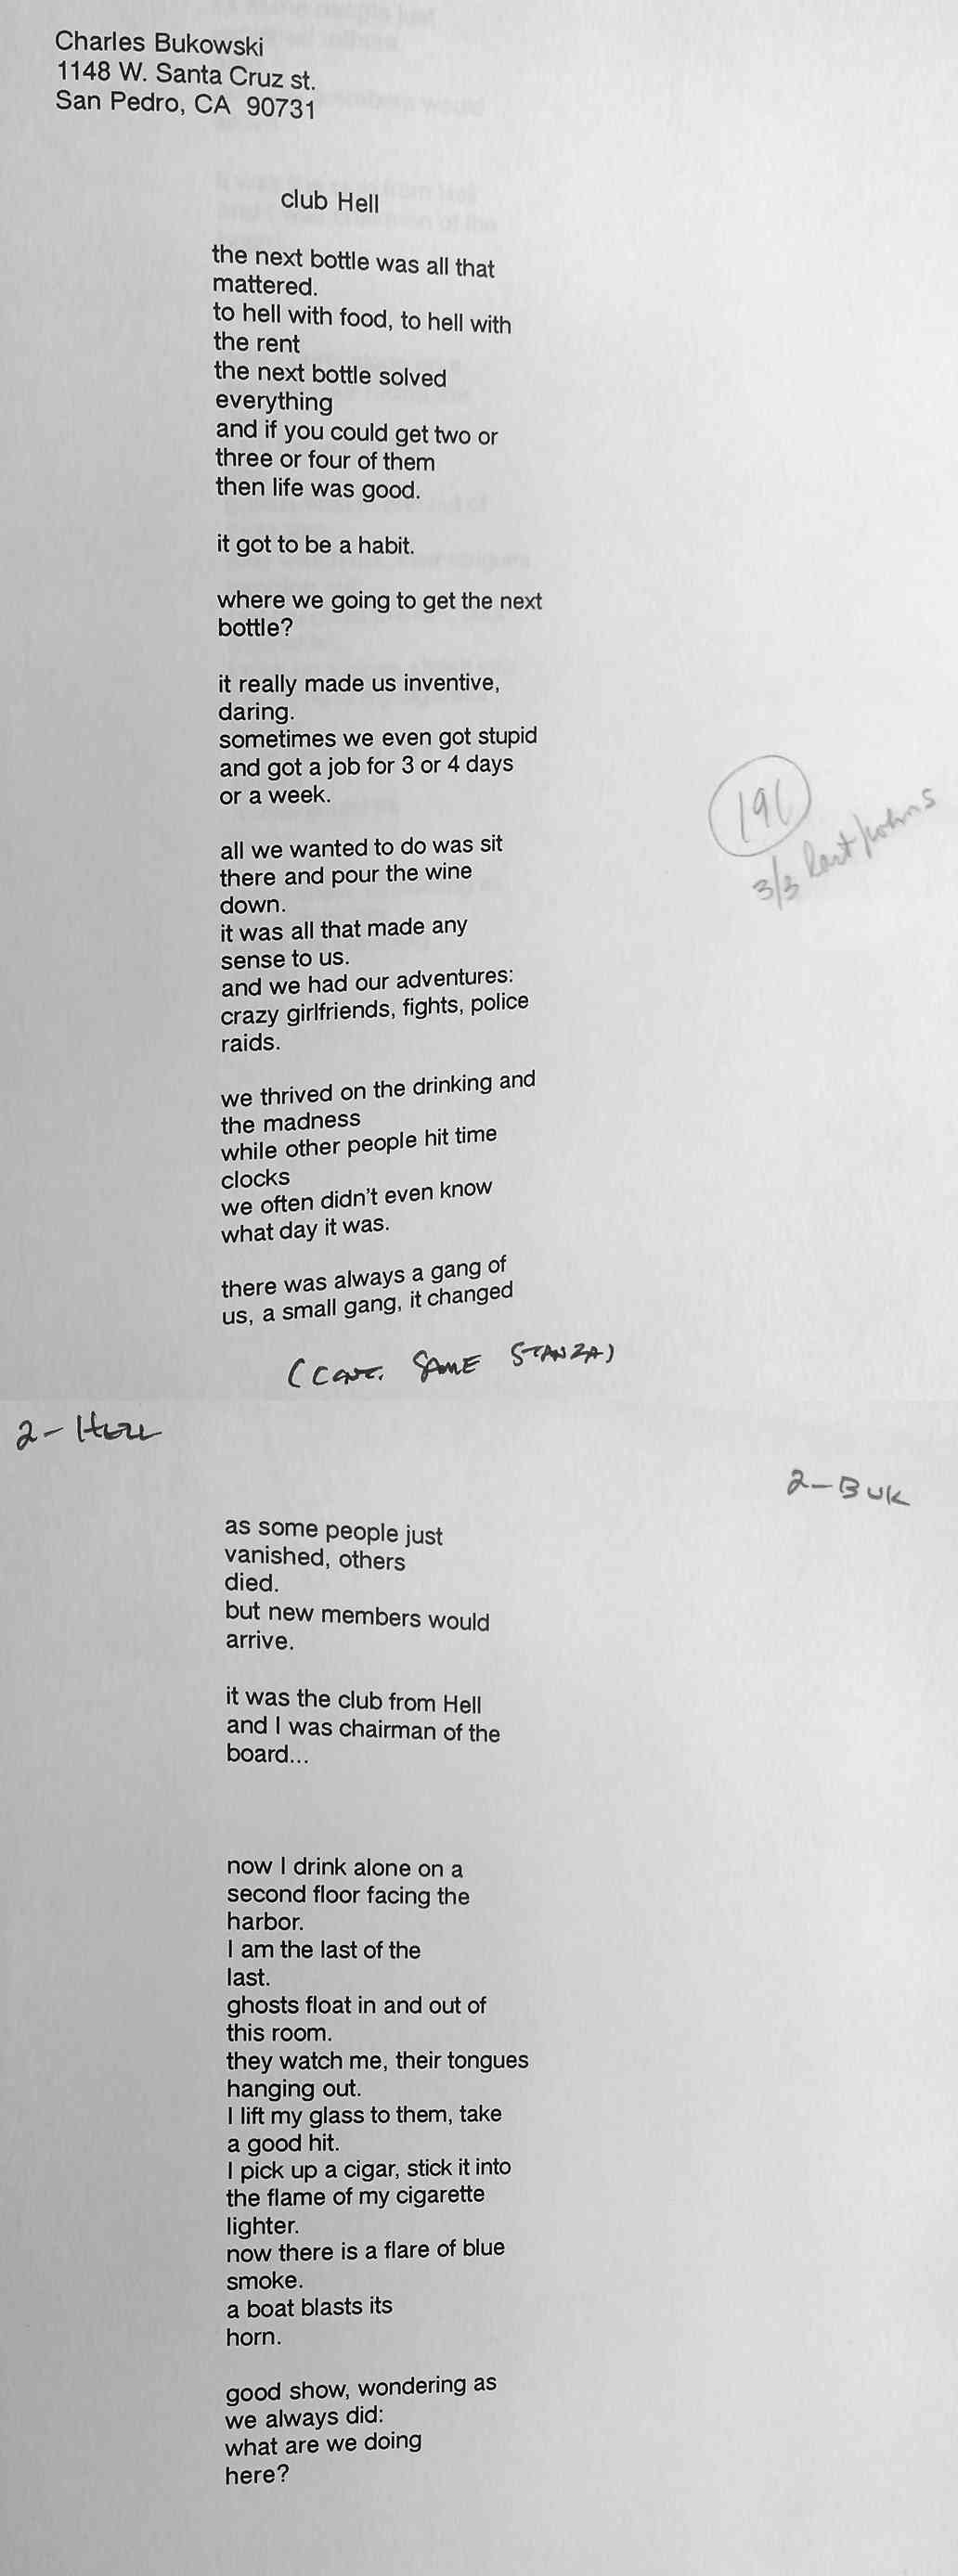 Charles Bukowski
1148 W. Santa Cruz st.
San Pedro, CA 90731
club Hell
the next bottle was all that
mattered.
to hell with food, to hell with
the rent
the next bottle solved
everything
and if you could get two or
three or four of them
then life was good.
it got to be a habit.
where we going to get the next
bottle?
it really made us inventive,
daring.
sometimes we even got stupid
and got a job for 3 or 4 days
or a week.
191
3/3 last/poems
all we wanted to do was sit
there and pour the wine
down.
it was all that made any
sense to us.
and we had our adventures:
crazy girlfriends, fights, police
raids.
we thrived on the drinking and
the madness
while other people hit time
clocks
we often didn't even know
what day it was.
there was always a gang of
us, a small gang, it changed
(CONT. SAME STANZA)
2-HELL
2-BUK
as some people just
vanished, others
died.
but new members would
arrive.
it was the club from Hell
and I was chairman of the
board...
now I drink alone on a
second floor facing the
harbor.
I am the last of the
last.
ghosts float in and out of
this room.
they watch me, their tongues
hanging out.
I lift my glass to them, take
a good hit.
I pick up a cigar, stick it into
the flame of my cigarette
lighter.
now there is a flare of blue
smoke.
a boat blasts its
horn.
good show, wondering as
we always did:
what are we doing
here?